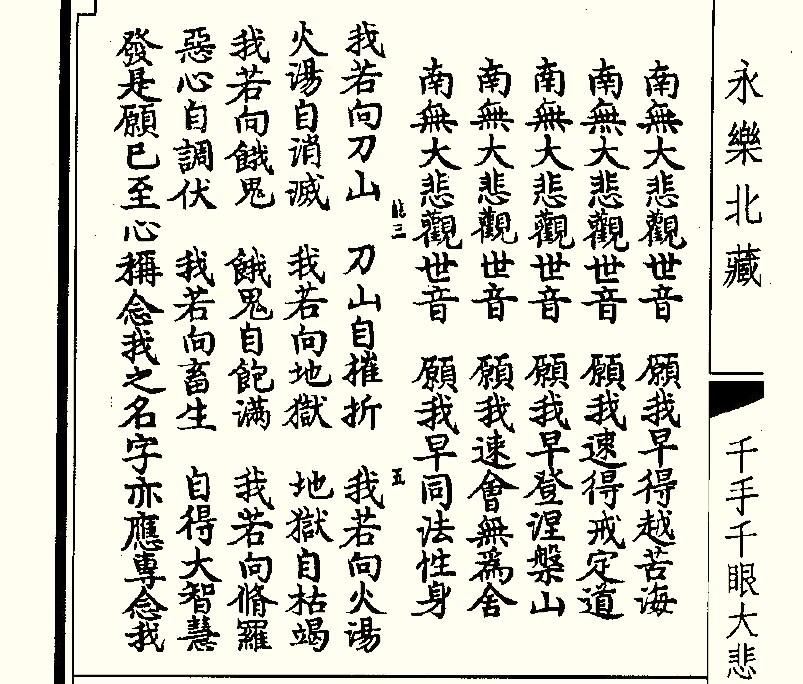 永樂北藏
千手千眼大悲
南無大悲觀世音 願我早得越苦海
南無大悲觀世音 願我速得戒定道
南無大悲觀世音 願我早登涅槃山
南無大悲觀世音 願我速會無為舍
南無大悲觀世音 願我早同法性身
三 五
我若向刀山 刀山自摧折 我若向火湯
火湯自消滅 我若向地獄 地獄自枯竭
我若向餓鬼 餓鬼自飽滿 我若向脩羅
惡心自調伏 我若向畜生 自得大智慧
發是願已至心稱念我之名字亦應專念我